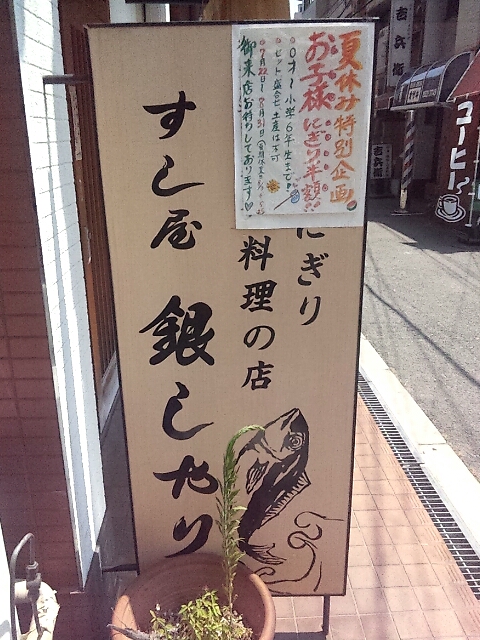 夏休み特別企画
お子様にぎり半額!!
0才～小学6年生まで
セット、盛合せ、土産は不可
御来店お待ちしております♡
にぎり
料理の店
すし屋
銀しゃり
コーヒー
吉兵衛
吉兵衛